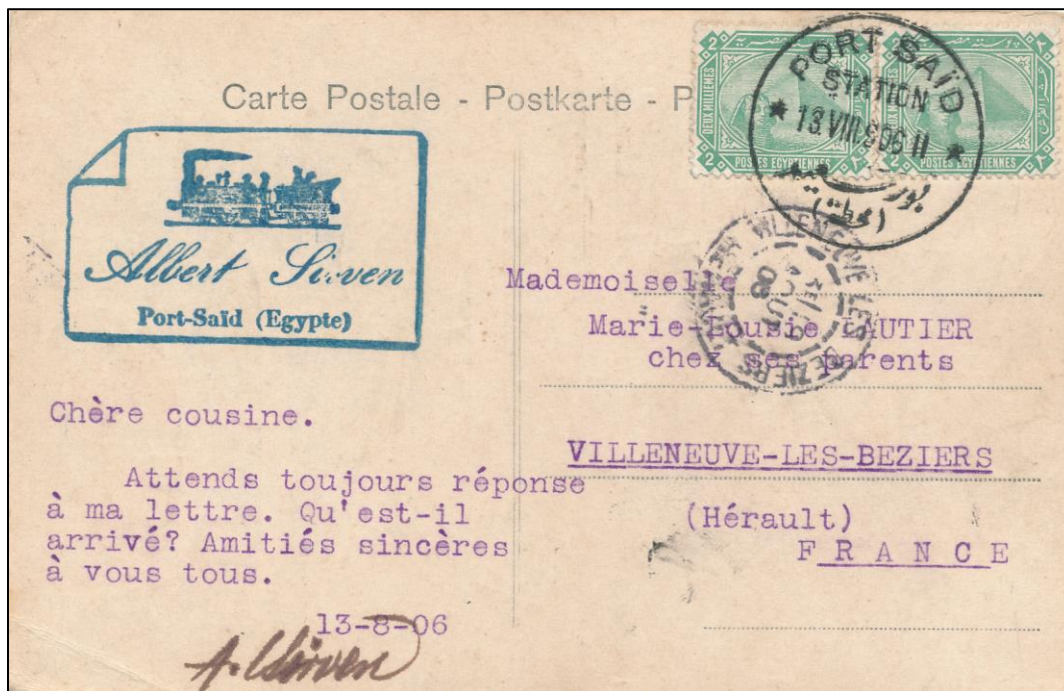 Carte Postale - Postkarte - P
DEUX MILLIEMES
2
2
POSTES EGYPTIENNES
2
2
POSTES EGYPTIENNES
PORT SAÏD
STATION
* 13.VIII.906 11 *
بور سعيد
(محطة)
Albert Sirven
Port-Saïd (Egypte)
VILLENEUVE LES BEZIERS
HERAULT
AOUT
06
Mademoiselle
Marie-Lousie LAUTIER
chez ses parents
VILLENEUVE-LES-BEZIERS
(Hérault)
FRANCE
Chère cousine.
Attends toujours réponse
à ma lettre. Qu'est-il
arrivé? Amitiés sincères
à vous tous.
13-8-06
A. Sirven